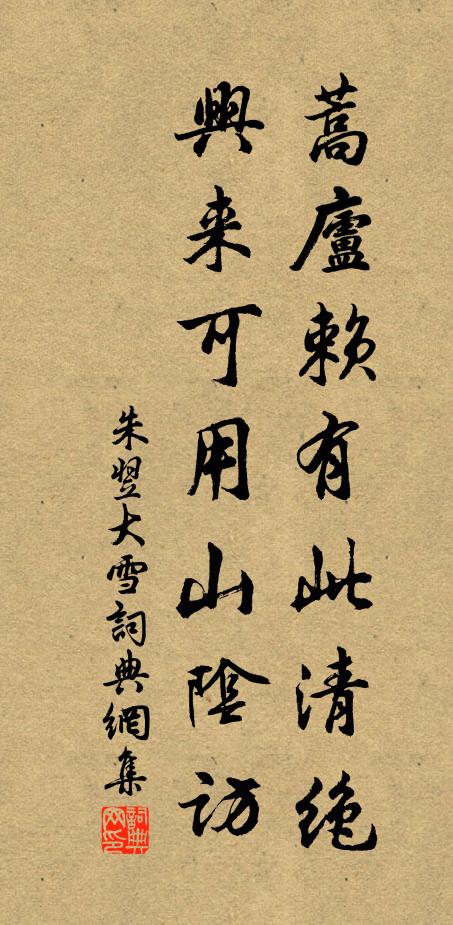 蒿廬賴有此清絶
興来可用山陰訪
朱翌大雪詞典網集
詞典网印